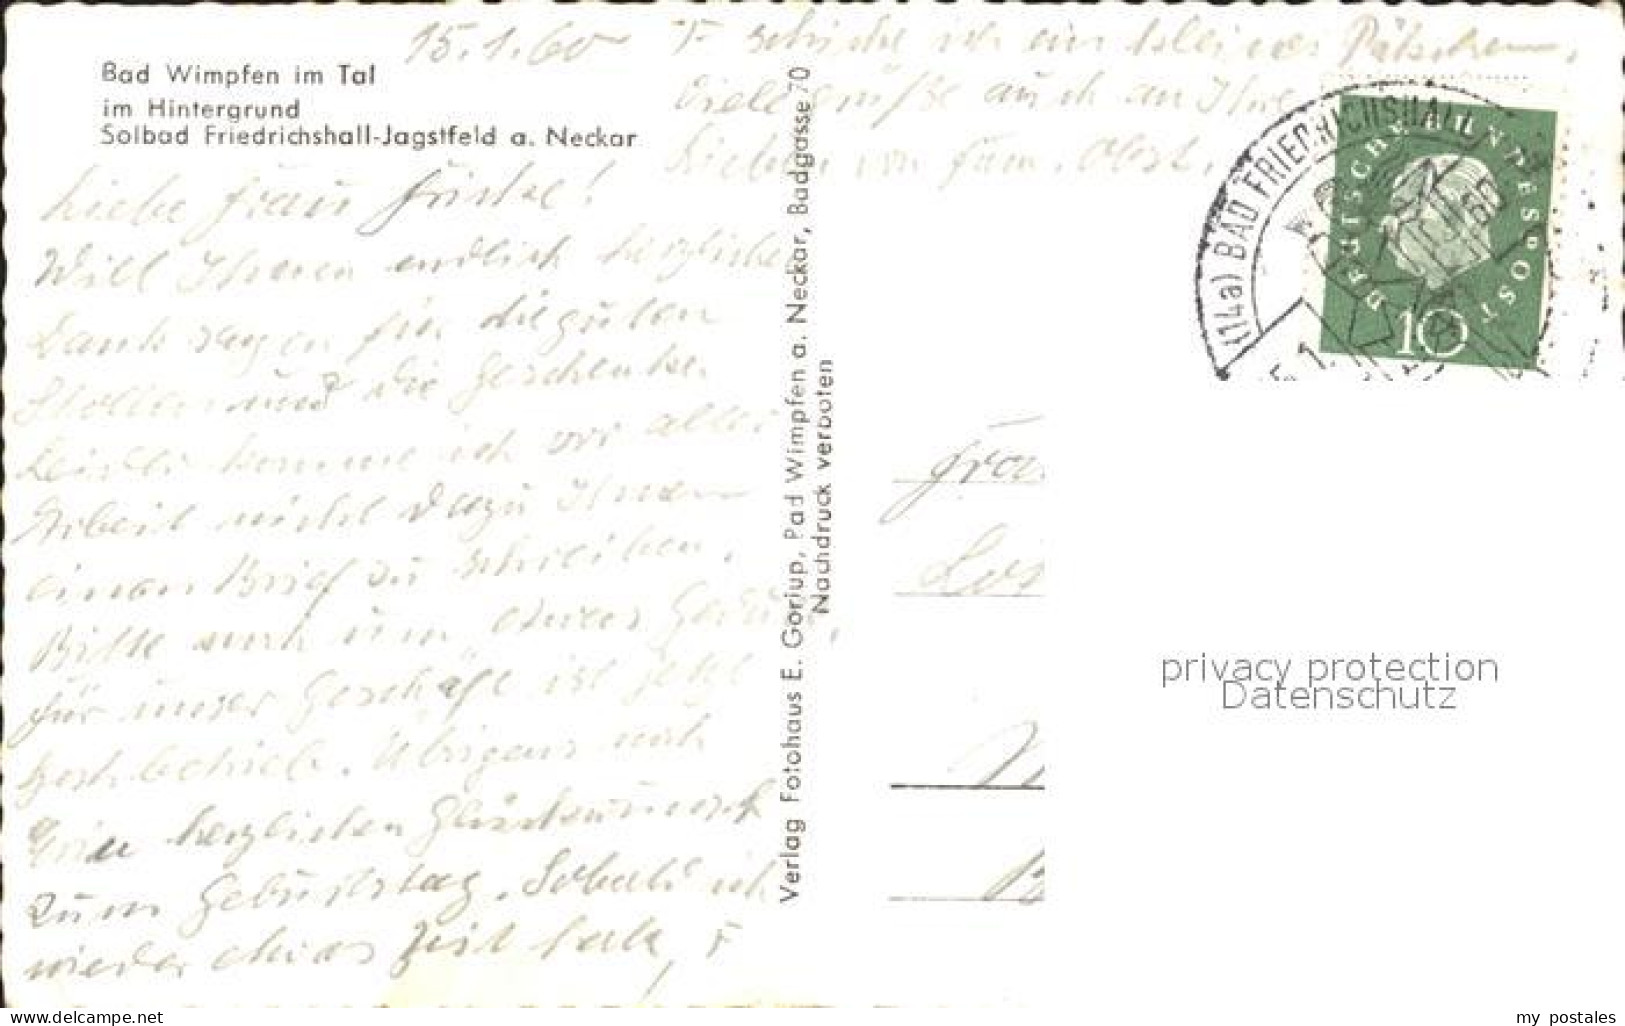 Bad Wimpfen im Tal
im Hintergrund
Solbad Friedrichshall-Jagstfeld a. Neckar
15.1.60
Liebe Frau
Will Ihnen endlich herzlichen
Dank sagen für die guten
Stollen und die Geschenke.
Leider komme ich vor aller
Arbeit nicht dazu Ihnen
einen Brief zu schreiben.
Bitte noch um etwas Geduld,
für unser Geschäft ist jetzt
Hochbetrieb. Übrigens noch
herzlichen Glückwunsch
zum Geburtstag. Sobald ich
wieder etwas Zeit habe,
schicke ich ein kleines Päckchen.
Viele Grüße auch an Ihre
Lieben von Fam.
Verlag Fotohaus E. Goriup, Bad Wimpfen a. Neckar, Badgasse 70
Nachdruck verboten
(14a) BAD FRIEDRICHSHALL
DEUTSCHE BUNDESPOST
10
privacy protection
Datenschutz
my postales
www.delcampe.net